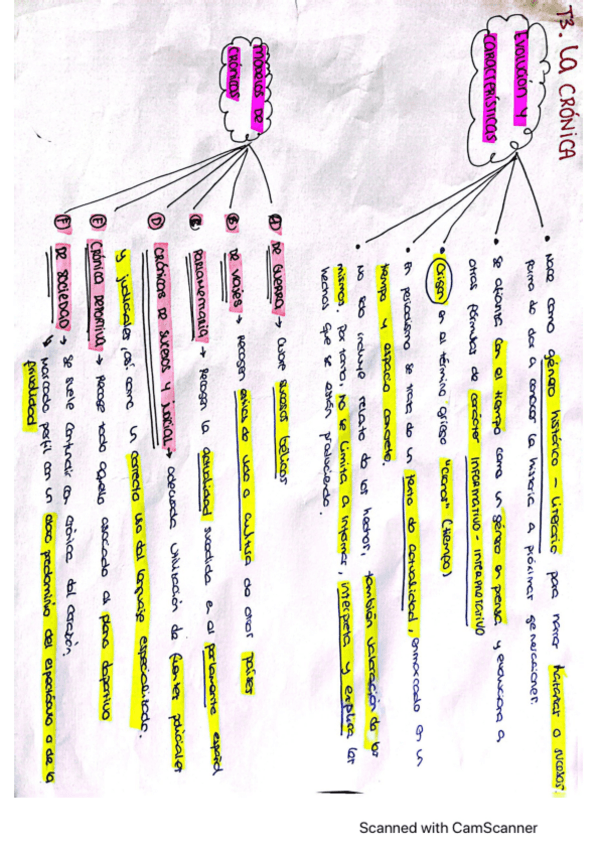 T3. LA CRÓNICA
EVOLUCIÓN Y
CARACTERÍSTICAS
• Nace como género histórico - literario para narrar historias o sucesos
forma de dar a conocer la historia a próximas generaciones.
• Se afianza con el tiempo como un género en prensa y evoluciona a
otras fórmulas de carácter INFORMATIVO - INTERPRETATIVO
• Origen en el término griego "cronos" (tiempo)
• En periodismo se trata de un texto de actualidad, enmarcado en un
tiempo y espacio concreto.
• No solo incluye relato de los hechos, también valoración de los
mismos. Por tanto, no se limita a informar, interpreta y explica los
hechos que se están produciendo.
MODELOS DE
CRÓNICAS
A DE GUERRA → Cubre sucesos bélicos
B DE VIAJES → Recogen estilos de vida o cultura de otros países
C PARLAMENTARIA → Recogen la actualidad sucedida en el parlamento español
D CRÓNICAS DE SUCESOS Y JUDICIAL → adecuada utilización de fuentes policiales
y judiciales, así como un correcto uso del lenguaje especializado.
E CRÓNICA DEPORTIVA → Recoge todo aquello asociado al plano deportivo
F DE SOCIEDAD → Se suele confundir con crónica del corazón.
↘ Marcado perfil con un claro predominio del espectáculo o de la
frivolidad
Scanned with CamScanner